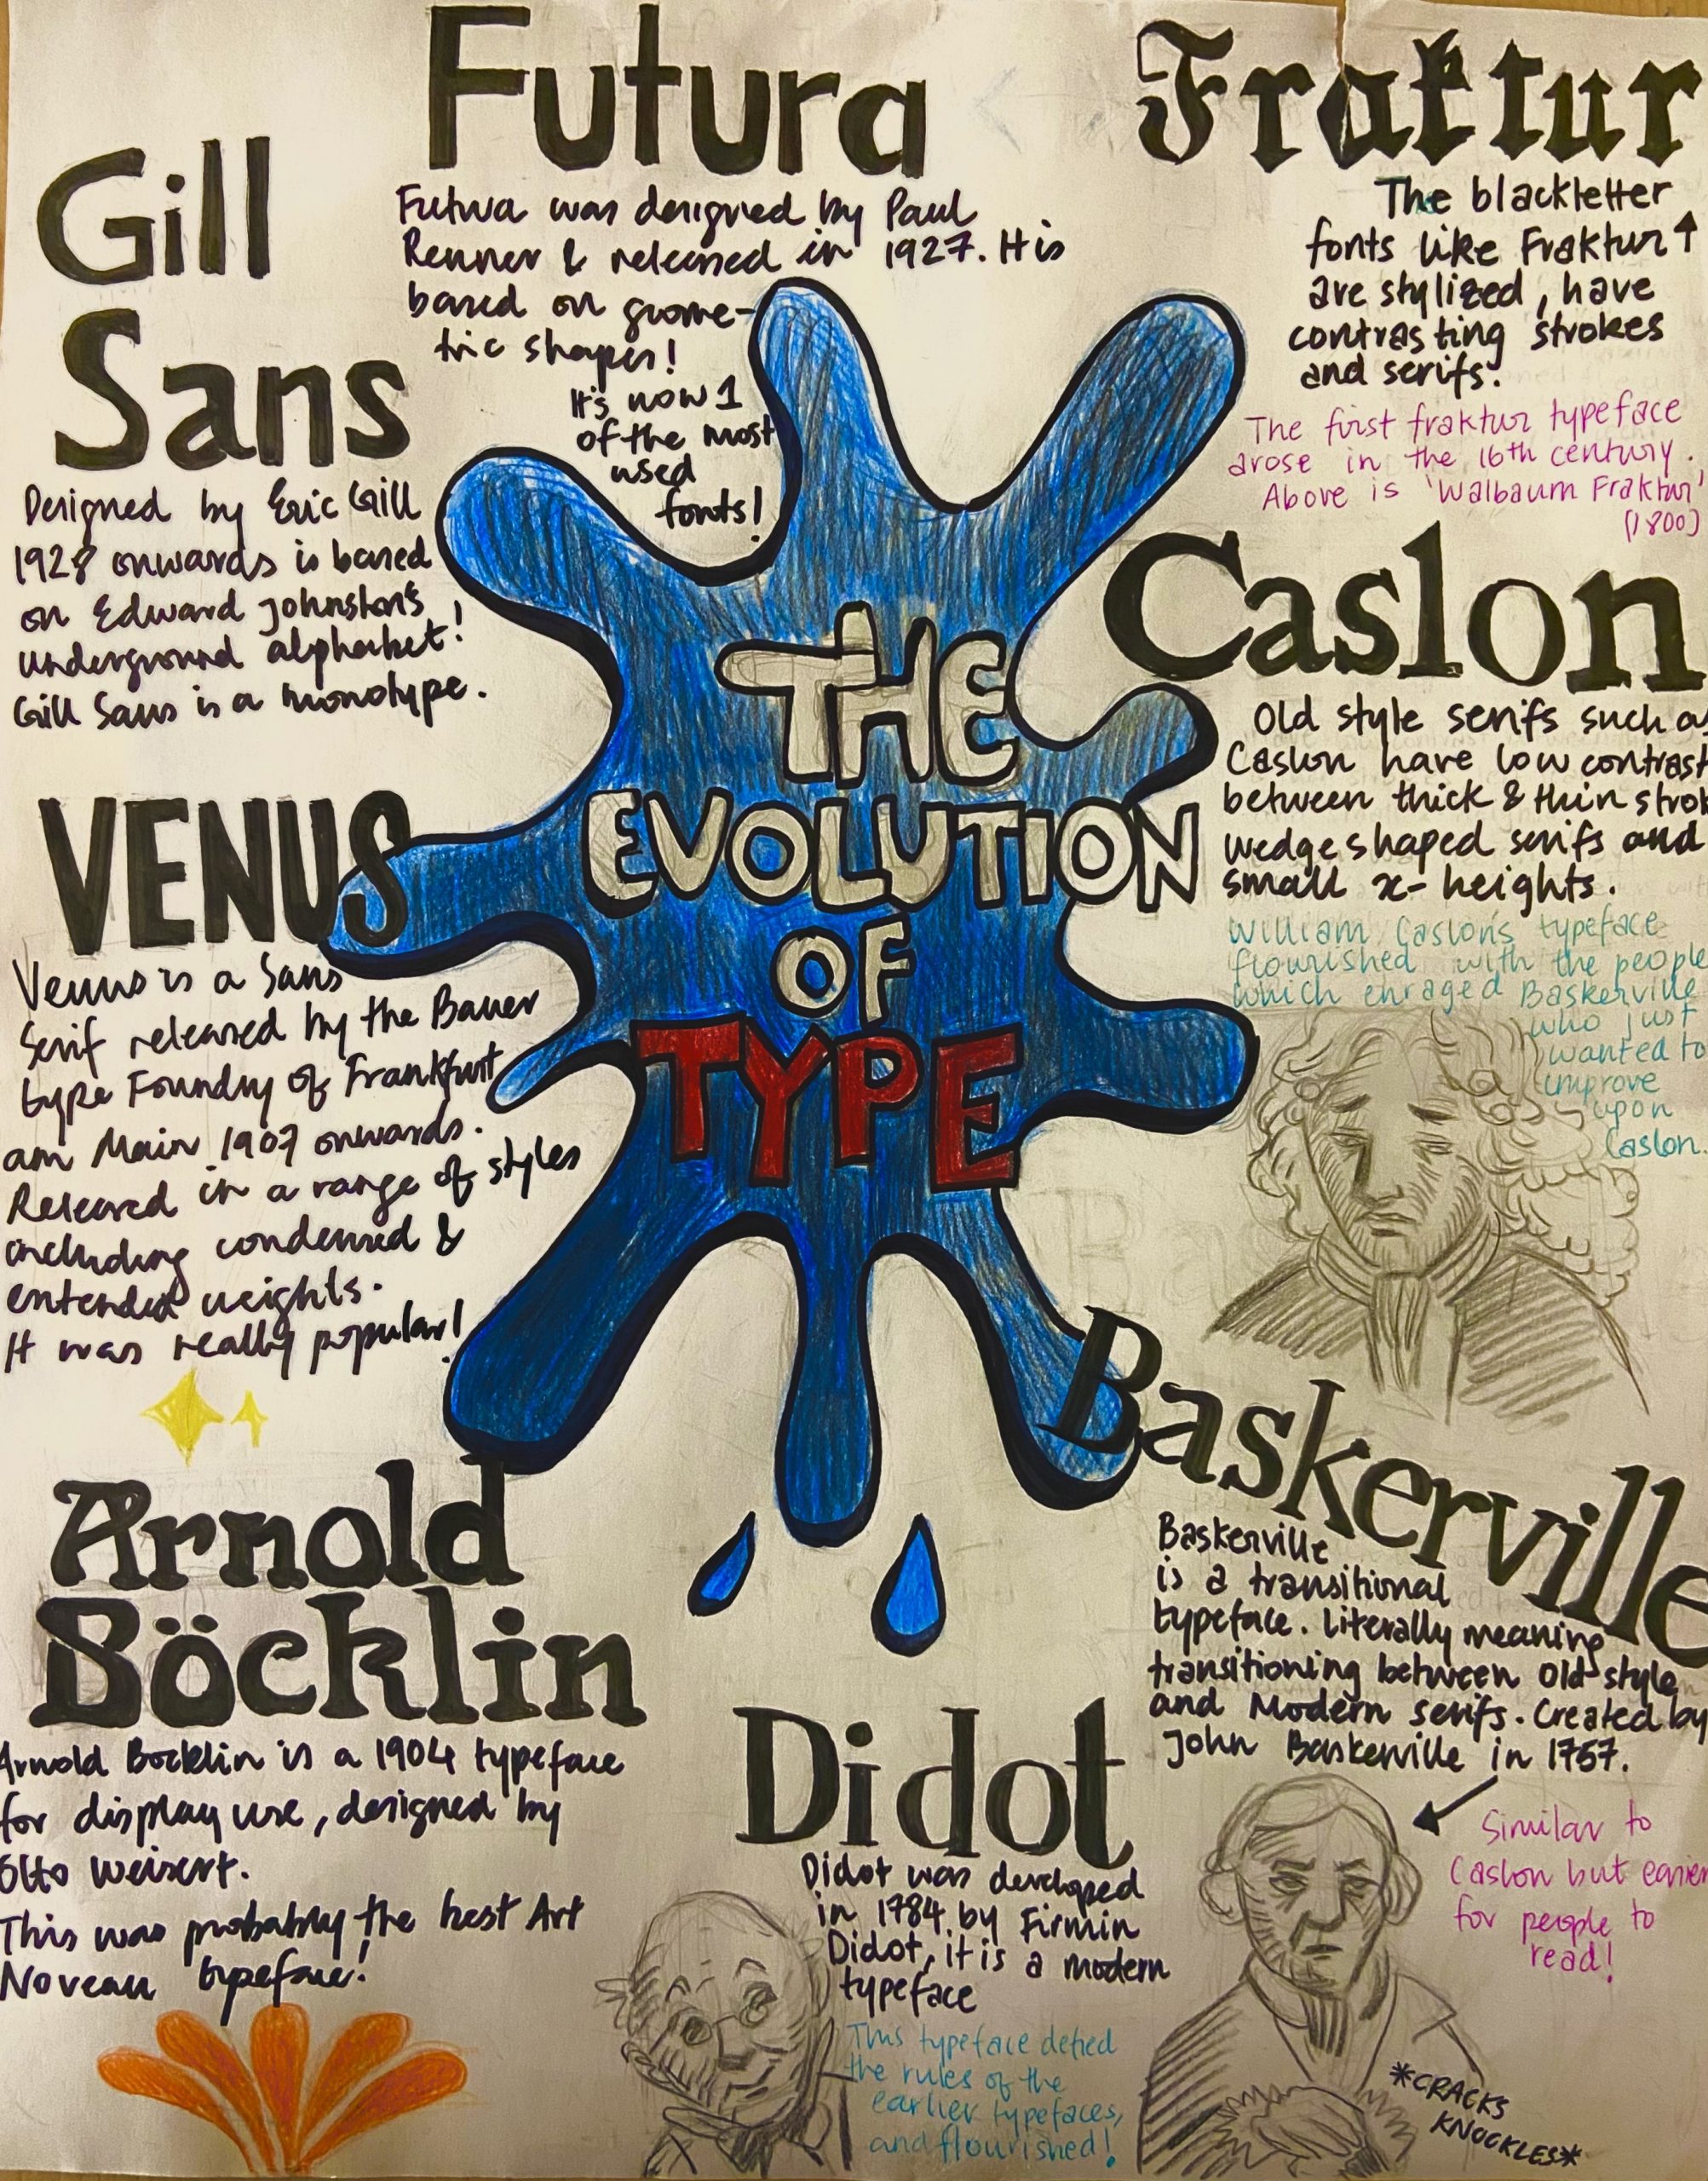 Futura
Futura was designed by Paul
Renner & released in 1927. It is
based on geome-
tric shapes!
It's now 1
of the most
used
fonts!
Fraktur
The blackletter
fonts like Fraktur↑
are stylized, have
contrasting strokes
and serifs.
The first fraktur typeface
arose in the 16th century.
Above is 'Walbaum Fraktur'
(1800)
Gill
Sans
Designed by Eric Gill
1928 onwards is based
on Edward Johnston's
underground alphabet!
Gill Sans is a monotype.
Caslon
Old style serifs such as
Caslon have low contrast
between thick & thin strok
wedge shaped serifs and
small x-heights.
William Caslon's typeface
flourished with the people
which enraged Baskerville
who just
wanted to
improve
upon
Caslon.
THE
EVOLUTION
OF
TYPE
VENUS
Venus is a Sans
Serif released by the Bauer
type Foundry of Frankfurt
am Main 1907 onwards.
Released in a range of styles
including condensed &
extended weights.
It was really popular!
Baskerville
Baskerville
is a transitional
typeface. Literally meaning
transitioning between Old style
and Modern serifs. Created by
John Baskerville in 1757.
Similar to
Caslon but easier
for people to
read!
*CRACKS
KNUCKLES*
Arnold
Böcklin
Arnold Bocklin is a 1904 typeface
for display use, designed by
Otto Weisert.
This was probably the best Art
Noveau typeface!
Didot
Didot was developed
in 1784 by Firmin
Didot, it is a modern
typeface
This typeface defied
the rules of the
earlier typefaces,
and flourished!